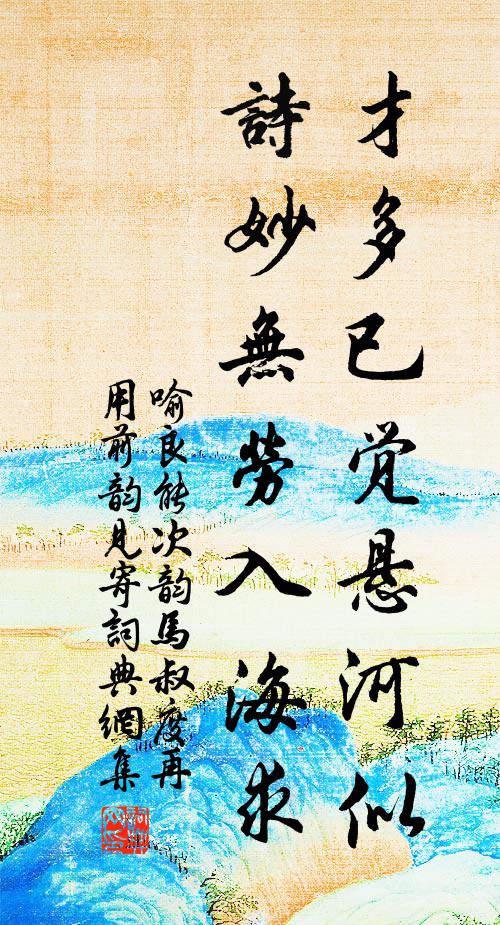 才多已觉悬河似
詩妙無勞入海求
喻良能次韵馬叔度再
用前韵見寄詞典網集